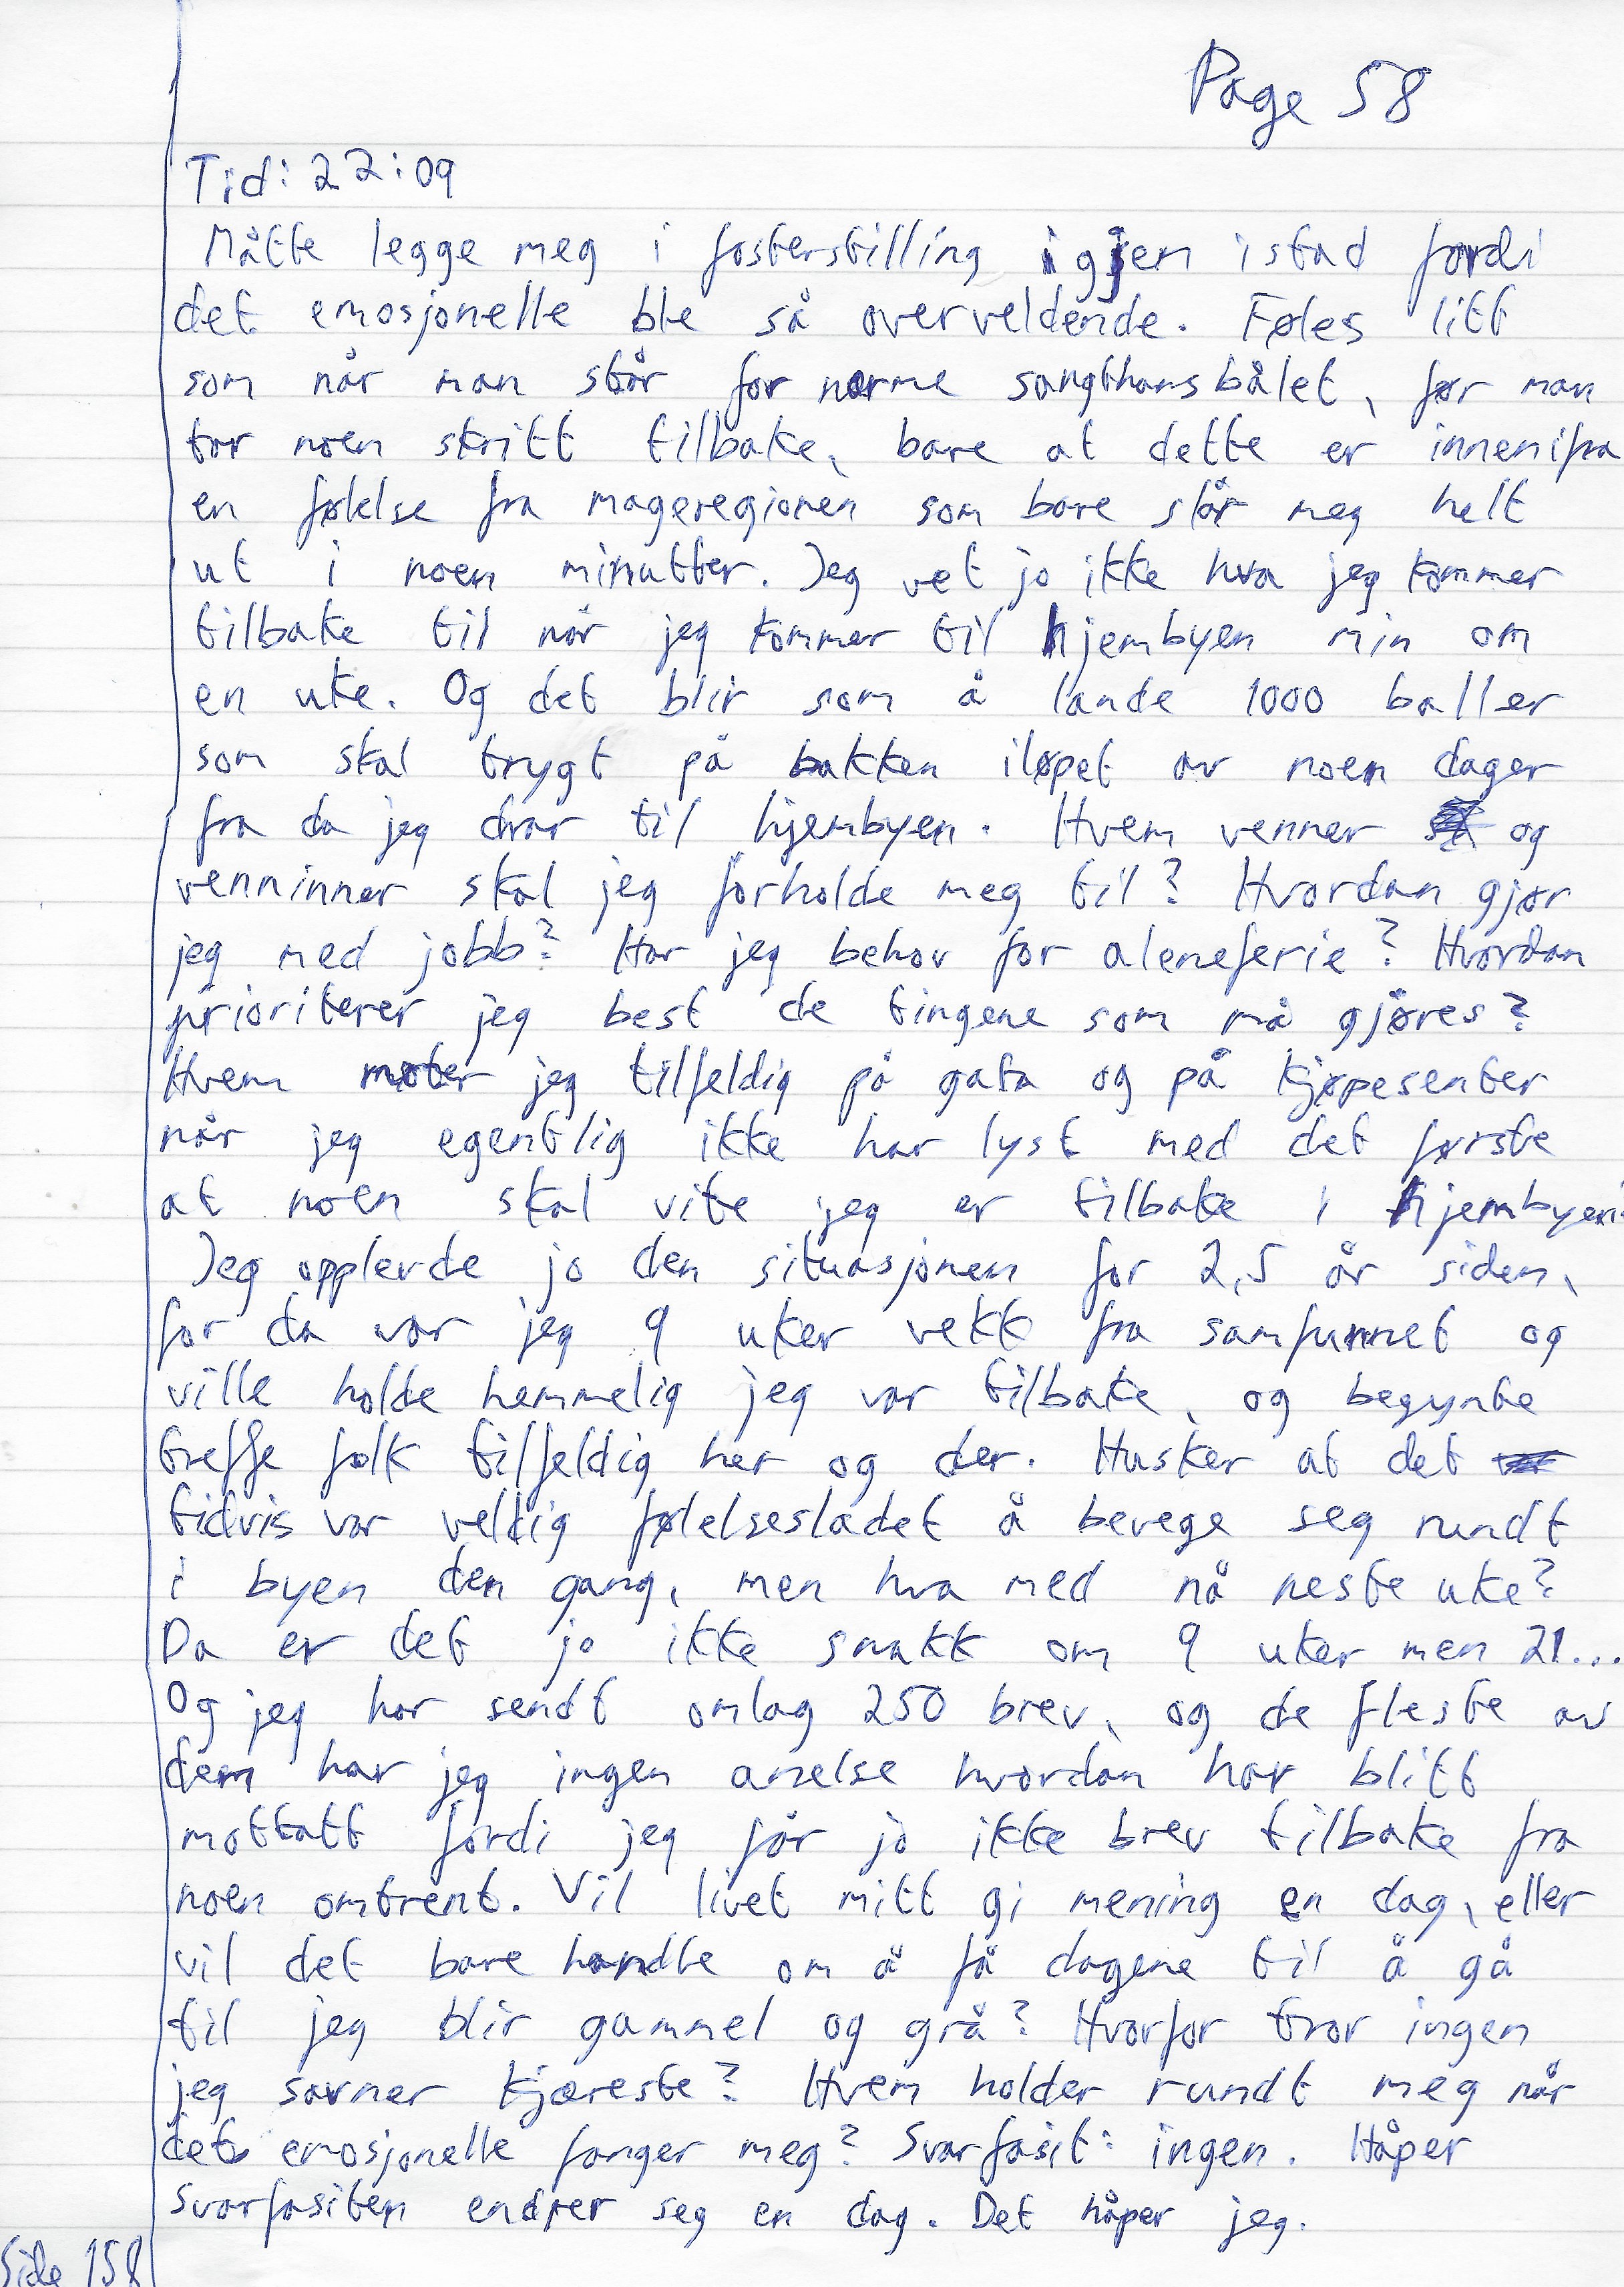 Page 58
Tid: 22:09
Måtte legge meg i fosterstilling igjen istad fordi
det emosjonelle ble så overveldende. Føles litt
som når man står for nærme sangthansbålet, før man
tar noen skritt tilbake, bare at dette er innenifra
en følelse fra mageregionen som bare slår meg helt
ut i noen minutter. Jeg vet jo ikke hva jeg kommer
tilbake til når jeg kommer til hjembyen min om
en uke. Og det blir som å lande 1000 baller
som skal trygt på bakken iløpet av noen dager
fra da jeg drar til hjembyen. Hvem venner og
venninner skal jeg forholde meg til? Hvordan gjør
jeg med jobb? Har jeg behov for aleneferie? Hvordan
prioriterer jeg best de tingene som må gjøres?
Hvem møter jeg tilfeldig på gata og på kjøpesenter
når jeg egentlig ikke har lyst med det første
at noen skal vite jeg er tilbake i hjembyen?
Jeg opplevde jo den situasjonen for 2,5 år siden,
for da var jeg 9 uker vekk fra samfunnet og
ville holde hemmelig jeg var tilbake, og begynte
treffe folk tilfeldig her og der. Husker at det
tidvis var veldig følelsesladet å bevege seg rundt
i byen den gang, men hva med nå neste uke?
Da er det jo ikke snakk om 9 uker men 21...
Og jeg har sendt omlag 250 brev, og de fleste av
dem har jeg ingen anelse hvordan har blitt
mottatt fordi jeg får jo ikke brev tilbake fra
noen omtrent. Vil livet mitt gi mening en dag, eller
vil det bare handle om å få dagene til å gå
til jeg blir gammel og grå? Hvorfor tror ingen
jeg savner kjæreste? Hvem holder rundt meg når
det emosjonelle fanger meg? Svarfasit: ingen. Håper
svarfasiten endrer seg en dag. Det håper jeg.
Side 158